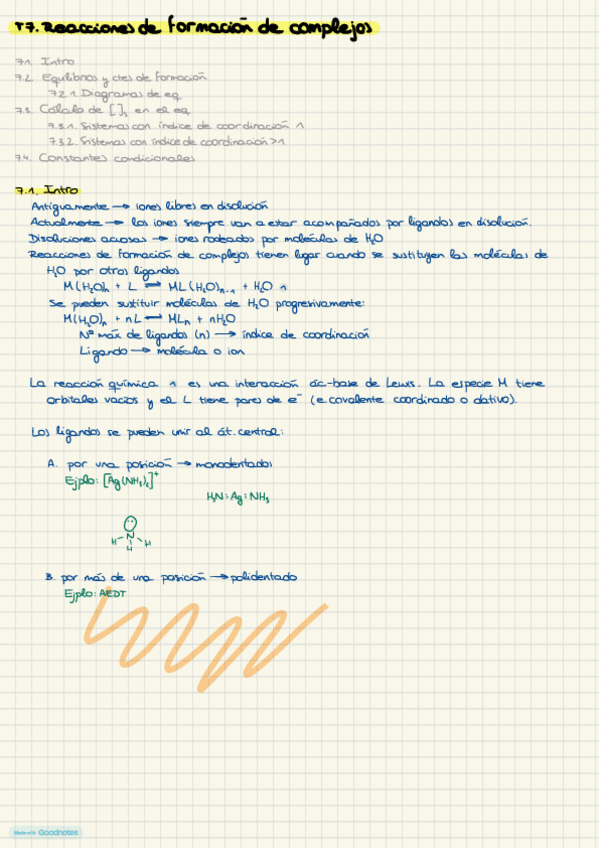 T7. Reacciones de formación de complejos
7.1. Intro
7.2. Equilibrios y ctes de formación
7.2.1. Diagramas de eq
7.3. Cálculo de [ ]s en el eq
7.3.1. Sistemas con índice de coordinación 1
7.3.2. Sistemas con índice de coordinación >1
7.4. Constantes condicionales
7.1. Intro
Antiguamente → iones libres en disolución
Actualmente → los iones siempre van a estar acompañados por ligandos en disolución.
Disoluciones acuosas → iones rodeados por moléculas de H2O
Reacciones de formación de complejos tienen lugar cuando se sustituyen las moléculas de
H2O por otros ligandos
M(H2O)n + L ⇌ ML(H2O)n-1 + H2O 1
Se pueden sustituir moléculas de H2O progresivamente:
M(H2O)n + nL ⇌ MLn + nH2O
Nº máx de ligandos (n) → índice de coordinación
Ligando → molécula o ion
La reacción química 1 es una interacción ác-base de Lewis. La especie M tiene
orbitales vacíos y el L tiene pares de e⁻ (e. covalente coordinado o dativo).
Los ligandos se pueden unir al át. central:
A. por una posición → monodentados
Ejplo: [Ag(NH3)2]⁺
H3N:Ag:NH3
N
H H
H
B. por más de una posición → polidentado
Ejplo: AEDT
Made with Goodnotes